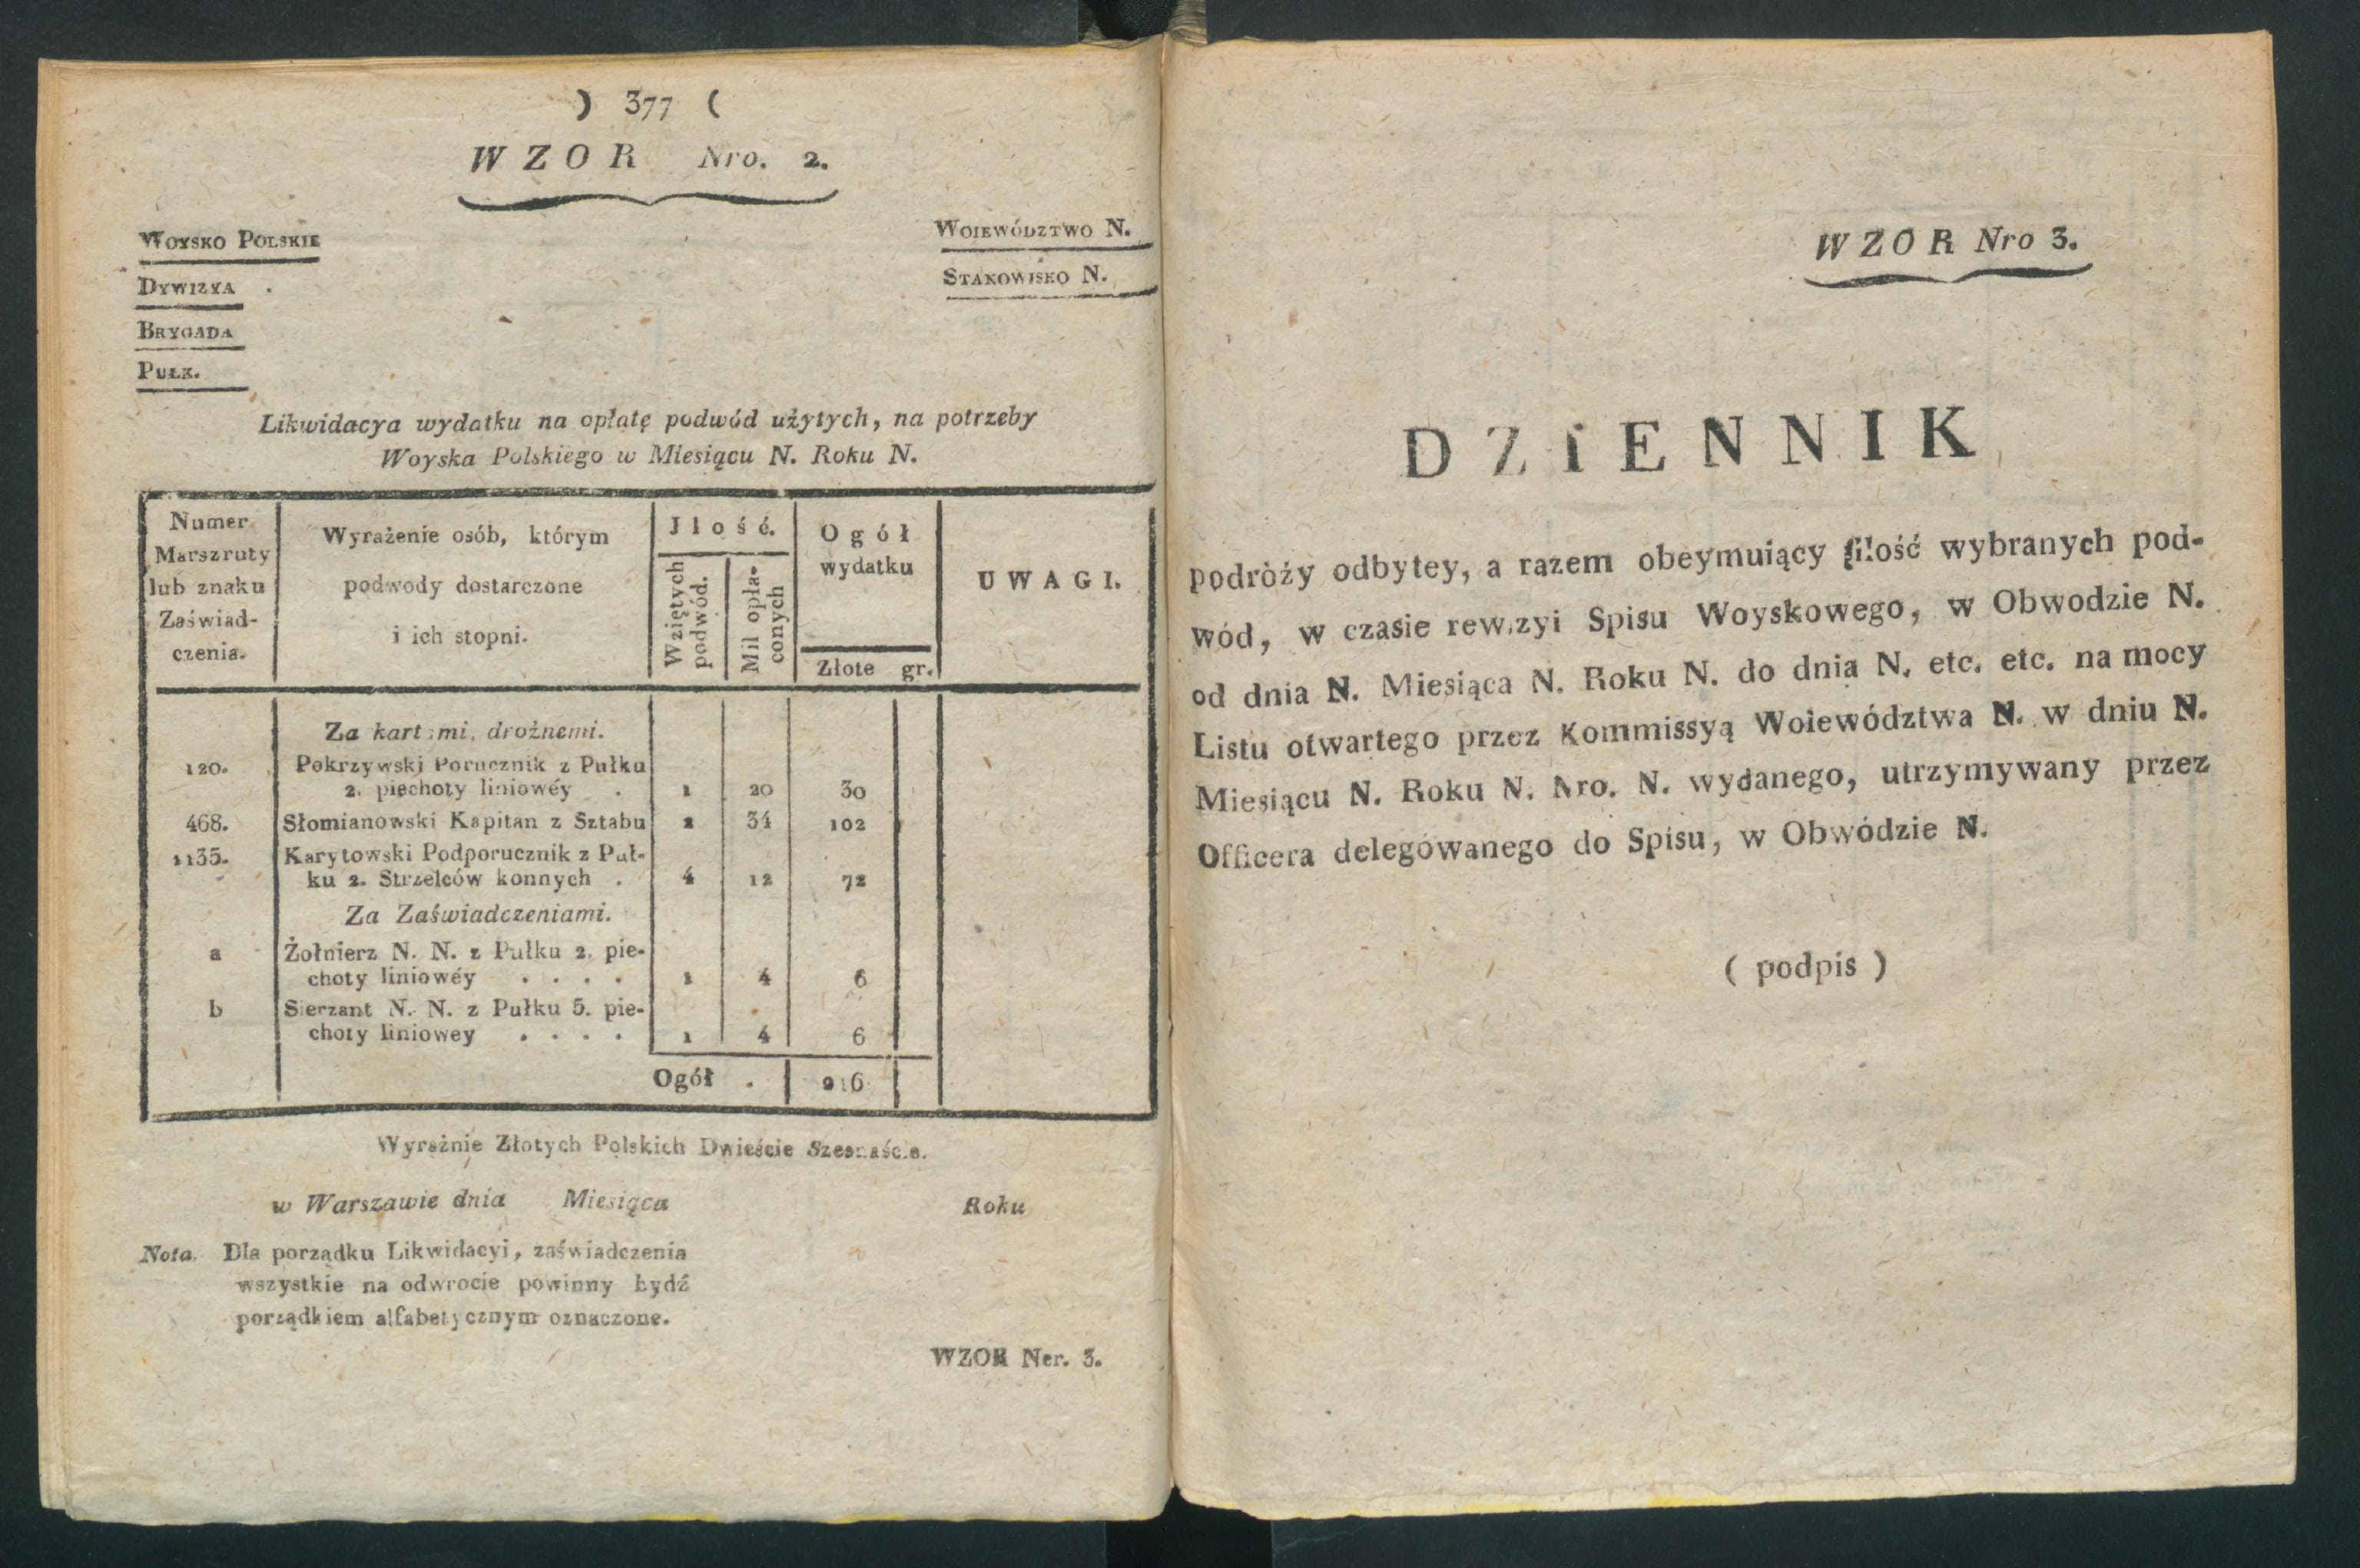 ) 377 (
WZOR Nro. 2.
WOYSKO POLSKIE
DYWIZYA
BRYGADA
PUŁK.
WOIEWÓDZTWO N.
STANOWISKO N.
Likwidacya wydatku na opłatę podwód użytych, na potrzeby
Woyska Polskiego w Miesiącu N. Roku N.
Numer
Marszruty
lub znaku
Zaświad-
czenia.
Wyrażenie osób, którym
podwody dostarczone
i ich stopni.
Jlość.
Wziętych
podwód.
Mil opła-
conych
Ogół
wydatku
Złote gr.
UWAGI.
Za kartami, drożnemi.
120. Pokrzywski Porucznik z Pułku
2. piechoty liniowéy . 1 20 30
468. Słomianowski Kapitan z Sztabu 2 34 102
1135. Karytowski Podporucznik z Puł-
ku 2. Strzelców konnych . 4 12 72
Za Zaświadczeniami.
a Żołnierz N. N. z Pułku 2. pie-
choty liniowéy . . . . 1 4 6
b Sierzant N. N. z Pułku 5. pie-
choty liniowey . . . . 1 4 6
Ogół . 216
Wyraźnie Złotych Polskich Dwieście Szesnaście.
w Warszawie dnia Miesiąca Roku
Nota. Dla porządku Likwidacyi, zaświadczenia
wszystkie na odwrocie powinny bydź
porządkiem alfabetycznym oznaczone.
WZOR Ner. 3.
WZOR Nro 3.
DZIENNIK
podróży odbytey, a razem obeymuiący ilość wybranych pod-
wód, w czasie rewizyi Spisu Woyskowego, w Obwodzie N.
od dnia N. Miesiąca N. Roku N. do dnia N. etc. etc. na mocy
Listu otwartego przez Kommissyą Woiewództwa N. w dniu N.
Miesiącu N. Roku N. Nro. N. wydanego, utrzymywany przez
Officera delegowanego do Spisu, w Obwódzie N.
( podpis )